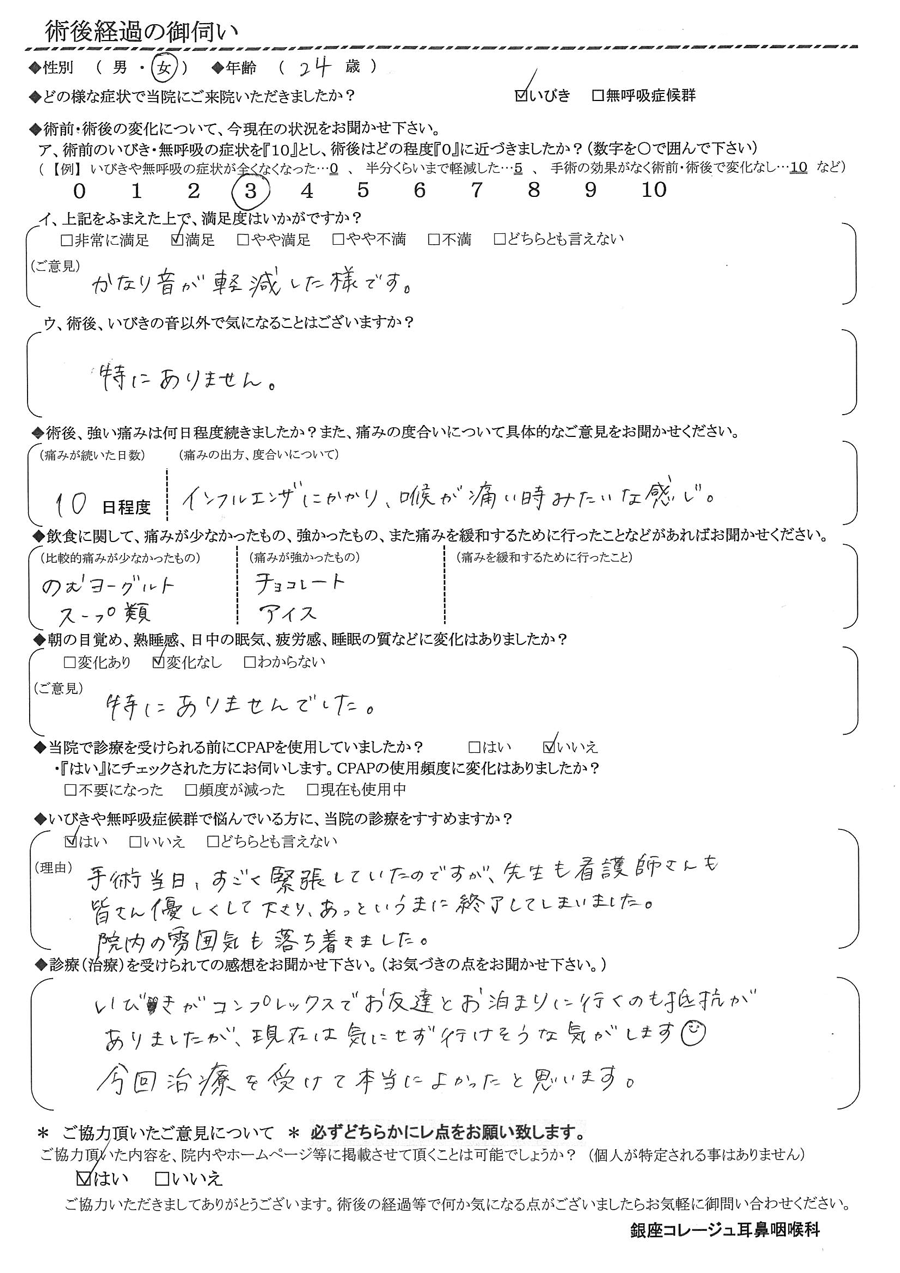 術後経過の御伺い
◆性別 ( 男 ・ 女 ) ◆年齢 ( 24 歳 )
◆どの様な症状で当院にご来院いただきましたか? ☑いびき □無呼吸症候群
◆術前・術後の変化について、今現在の状況をお聞かせ下さい。
ア、術前のいびき・無呼吸の症状を『10』とし、術後はどの程度『0』に近づきましたか?(数字を○で囲んで下さい)
(【例】 いびきや無呼吸の症状が全くなくなった…0 、 半分くらいまで軽減した…5 、 手術の効果がなく術前・術後で変化なし…10 など)
0 1 2 3 4 5 6 7 8 9 10
イ、上記をふまえた上で、満足度はいかがですか?
□非常に満足 ☑満足 □やや満足 □やや不満 □不満 □どちらとも言えない
(ご意見)
かなり音が軽減した様です。
ウ、術後、いびきの音以外で気になることはございますか?
特にありません。
◆術後、強い痛みは何日程度続きましたか?また、痛みの度合いについて具体的なご意見をお聞かせください。
(痛みが続いた日数) (痛みの出方、度合いについて)
10 日程度 インフルエンザにかかり、喉が痛い時みたいな感じ。
◆飲食に関して、痛みが少なかったもの、強かったもの、また痛みを緩和するために行ったことなどがあればお聞かせください。
(比較的痛みが少なかったもの) (痛みが強かったもの) (痛みを緩和するために行ったこと)
のむヨーグルト チョコレート
スープ類 アイス
◆朝の目覚め、熟睡感、日中の眠気、疲労感、睡眠の質などに変化はありましたか?
□変化あり ☑変化なし □わからない
(ご意見)
特にありませんでした。
◆当院で診療を受けられる前にCPAPを使用していましたか? □はい ☑いいえ
・『はい』にチェックされた方にお伺いします。CPAPの使用頻度に変化はありましたか?
□不要になった □頻度が減った □現在も使用中
◆いびきや無呼吸症候群で悩んでいる方に、当院の診療をすすめますか?
☑はい □いいえ □どちらとも言えない
(理由) 手術当日、すごく緊張していたのですが、先生も看護師さんも
皆さん優しくして下さり、あっというまに終了してしまいました。
院内の雰囲気も落ち着きました。
◆診療(治療)を受けられての感想をお聞かせ下さい。(お気づきの点をお聞かせ下さい。)
いびきがコンプレックスでお友達とお泊まりに行くのも抵抗が
ありましたが、現在は気にせず行けそうな気がします
今回治療を受けて本当によかったと思います。
* ご協力頂いたご意見について * 必ずどちらかにレ点をお願い致します。
ご協力頂いた内容を、院内やホームページ等に掲載させて頂くことは可能でしょうか? (個人が特定される事はありません)
☑はい □いいえ
ご協力いただきましてありがとうございます。術後の経過等で何か気になる点がございましたらお気軽に御問い合わせください。
銀座コレージュ耳鼻咽喉科